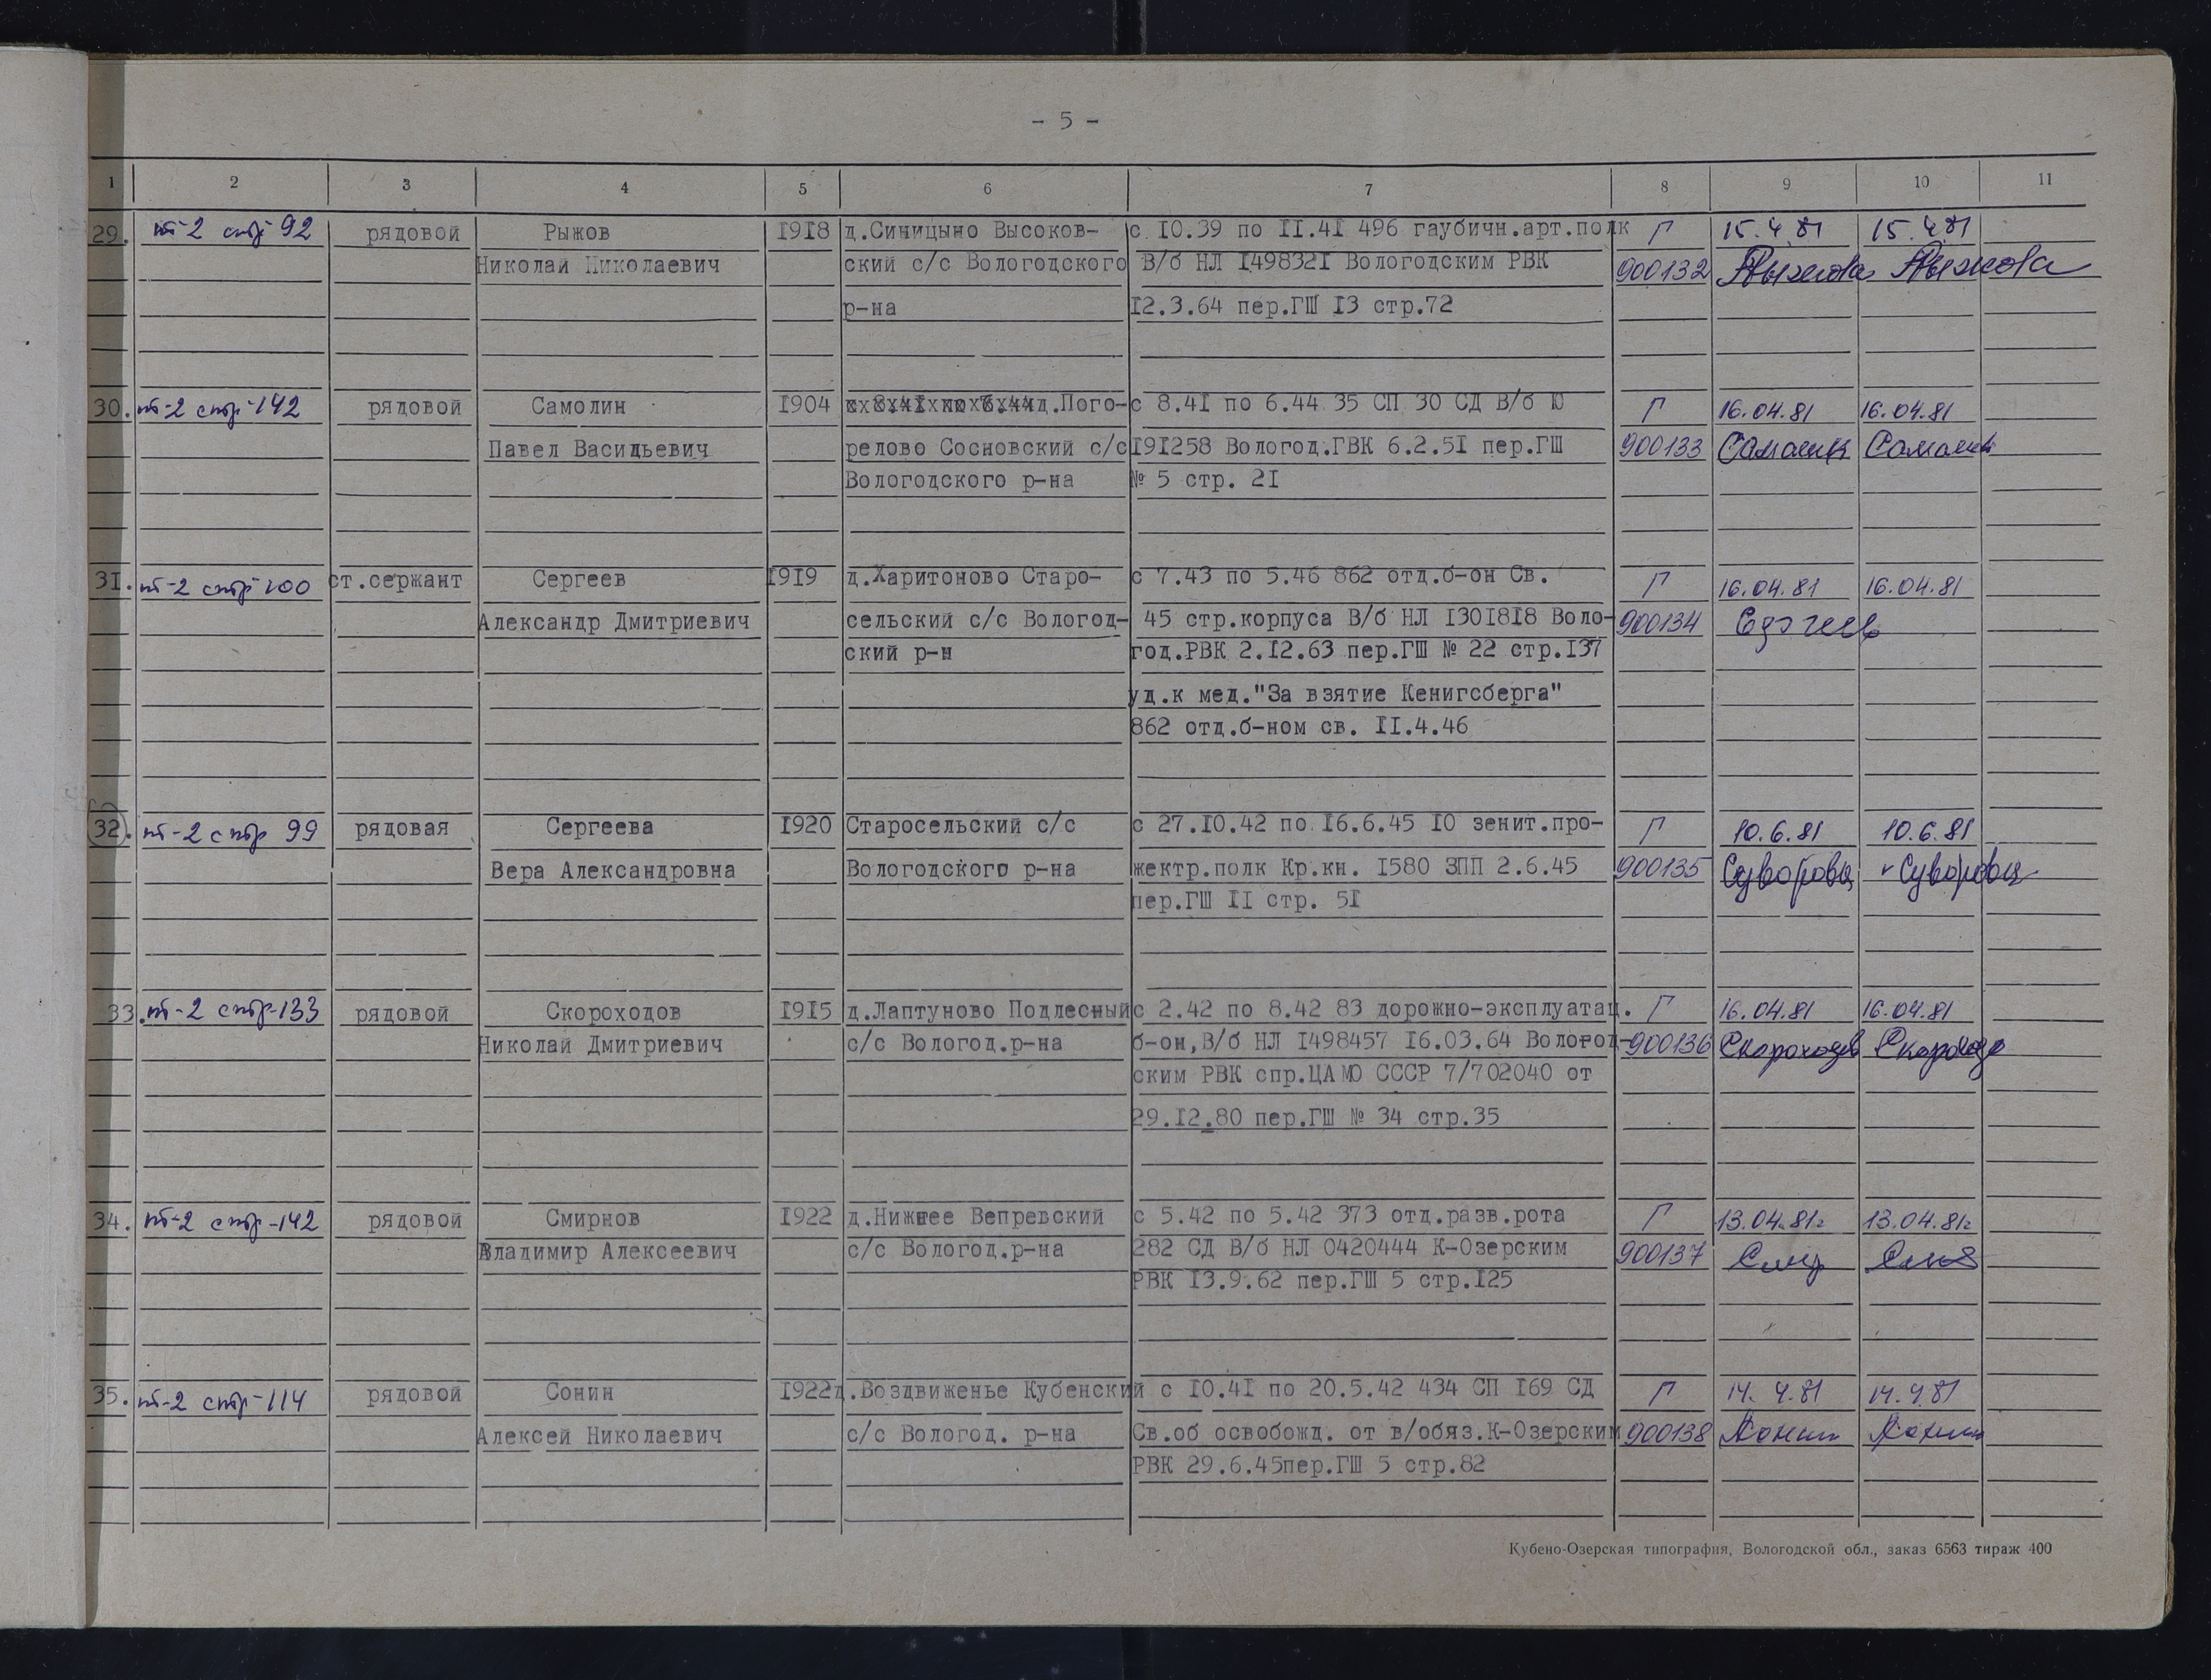 - 5 -
1 2 3 4 5 6 7 8 9 10 11
29. пт-2 стр 92 рядовой Рыжов 1918 д.Синицыно Высоков- с 10.39 по 11.41 496 гаубичн.арт.полк Г 15.4.81 15.4.81
Николай Николаевич ский с/с Вологодского В/б НЛ 1498321 Вологодским РВК 900132 Рыжова Рыжова
р-на 12.3.64 пер.ГШ 13 стр.72
30. пт-2 стр-142 рядовой Самолин 1904 д.Пого- с 8.41 по 6.44 35 СП 30 СД В/б Ю Г 16.04.81 16.04.81
Павел Васильевич релово Сосновский с/с 191258 Вологод.ГВК 6.2.51 пер.ГШ 900133 Самолин Самолин
Вологодского р-на № 5 стр. 21
31. пт-2 стр-100 ст.сержант Сергеев 1919 д.Харитоново Старо- с 7.43 по 5.46 862 отд.б-он Св. Г 16.04.81 16.04.81
Александр Дмитриевич сельский с/с Вологод- 45 стр.корпуса В/б НЛ 1301818 Воло- 900134
ский р-н год.РВК 2.12.63 пер.ГШ № 22 стр.137
уд.к мед."За взятие Кенигсберга"
862 отд.б-ном св. 11.4.46
32. пт-2 стр 99 рядовая Сергеева 1920 Старосельский с/с с 27.10.42 по 16.6.45 10 зенит.про- Г 10.6.81 10.6.81
Вера Александровна Вологодского р-на жектр.полк Кр.кн. 1580 ЗПП 2.6.45 900135 Суворова Суворова
пер.ГШ 11 стр. 51
33. пт-2 стр-133 рядовой Скороходов 1915 д.Лаптуново Подлесный с 2.42 по 8.42 83 дорожно-эксплуатац. Г 16.04.81 16.04.81
Николай Дмитриевич с/с Вологод.р-на б-он,В/б НЛ 1498457 16.03.64 Вологод- 900136 Скороходов
ским РВК спр.ЦАМО СССР 7/702040 от
29.12.80 пер.ГШ № 34 стр.35
34. пт-2 стр-142 рядовой Смирнов 1922 д.Нижнее Вепревский с 5.42 по 5.42 373 отд.разв.рота Г 13.04.81г 13.04.81г
Владимир Алексеевич с/с Вологод.р-на 282 СД В/б НЛ 0420444 К-Озерским 900137
РВК 13.9.62 пер.ГШ 5 стр.125
35. пт-2 стр-114 рядовой Сонин 1922 д.Воздвиженье Кубенский с 10.41 по 20.5.42 434 СП 169 СД Г 14.4.81 14.4.81
Алексей Николаевич с/с Вологод. р-на Св.об освобожд. от в/обяз.К-Озерским 900138 Сонин Сонин
РВК 29.6.45пер.ГШ 5 стр.82
Кубено-Озерская типография, Вологодской обл., заказ 6563 тираж 400